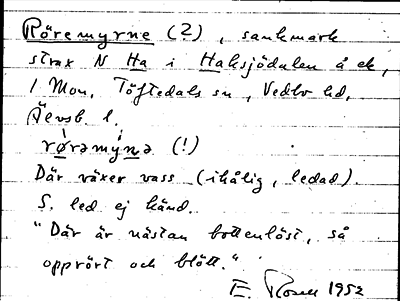 Röremyrne (?), sankmark
strax N Ha i Haksjödalen å ek,
1 Mon, Töftedals sn, Vedbo hd,
Älvsb. l.
røʹrəmyʹnə (!)
Där växer vass (ihålig, ledad).
S. led ej känd.
"Där är nästan bottenlöst, så
opprört och blött."
E. 1952